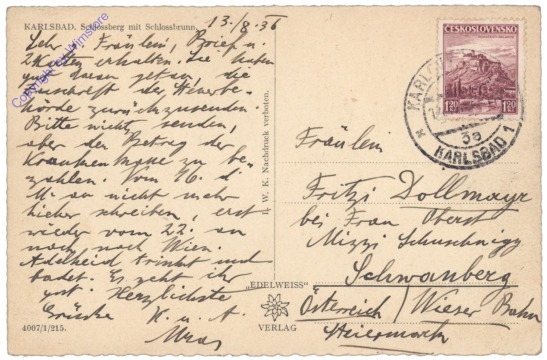 KARLSBAD. Schlossberg mit Schlossbrunn.
13./8. 36
Sehr g. Fräulein, Brief u.
2 Karten erhalten. Sie haben
gut daran getan, die
Zuschrift der
hörde zurückzusenden.
Bitte nicht senden,
aber den Betrag der
Krankenkasse zu be-
zahlen. Vom 16. d.
M. an nicht mehr
hieher schreiben, erst
wieder vom 22. an
nach Wien.
Adelheid trinkt und
badet. Es geht ihr
gut. Herzlichste
Grüsse K. u. A.
4007/1/215.
I. W. K. Nachdruck verboten.
„EDELWEISS"
VERLAG
ČESKOSLOVENSKO
1.20 1.20
KARLSBAD 1
3a
Fräulein
Fritzi Dollmayr
bei Frau Oberst
Mizzi Schuschnigg
Schwanberg
Österreich / Wieser Bahn
Steiermark
Copyright by Wimstore